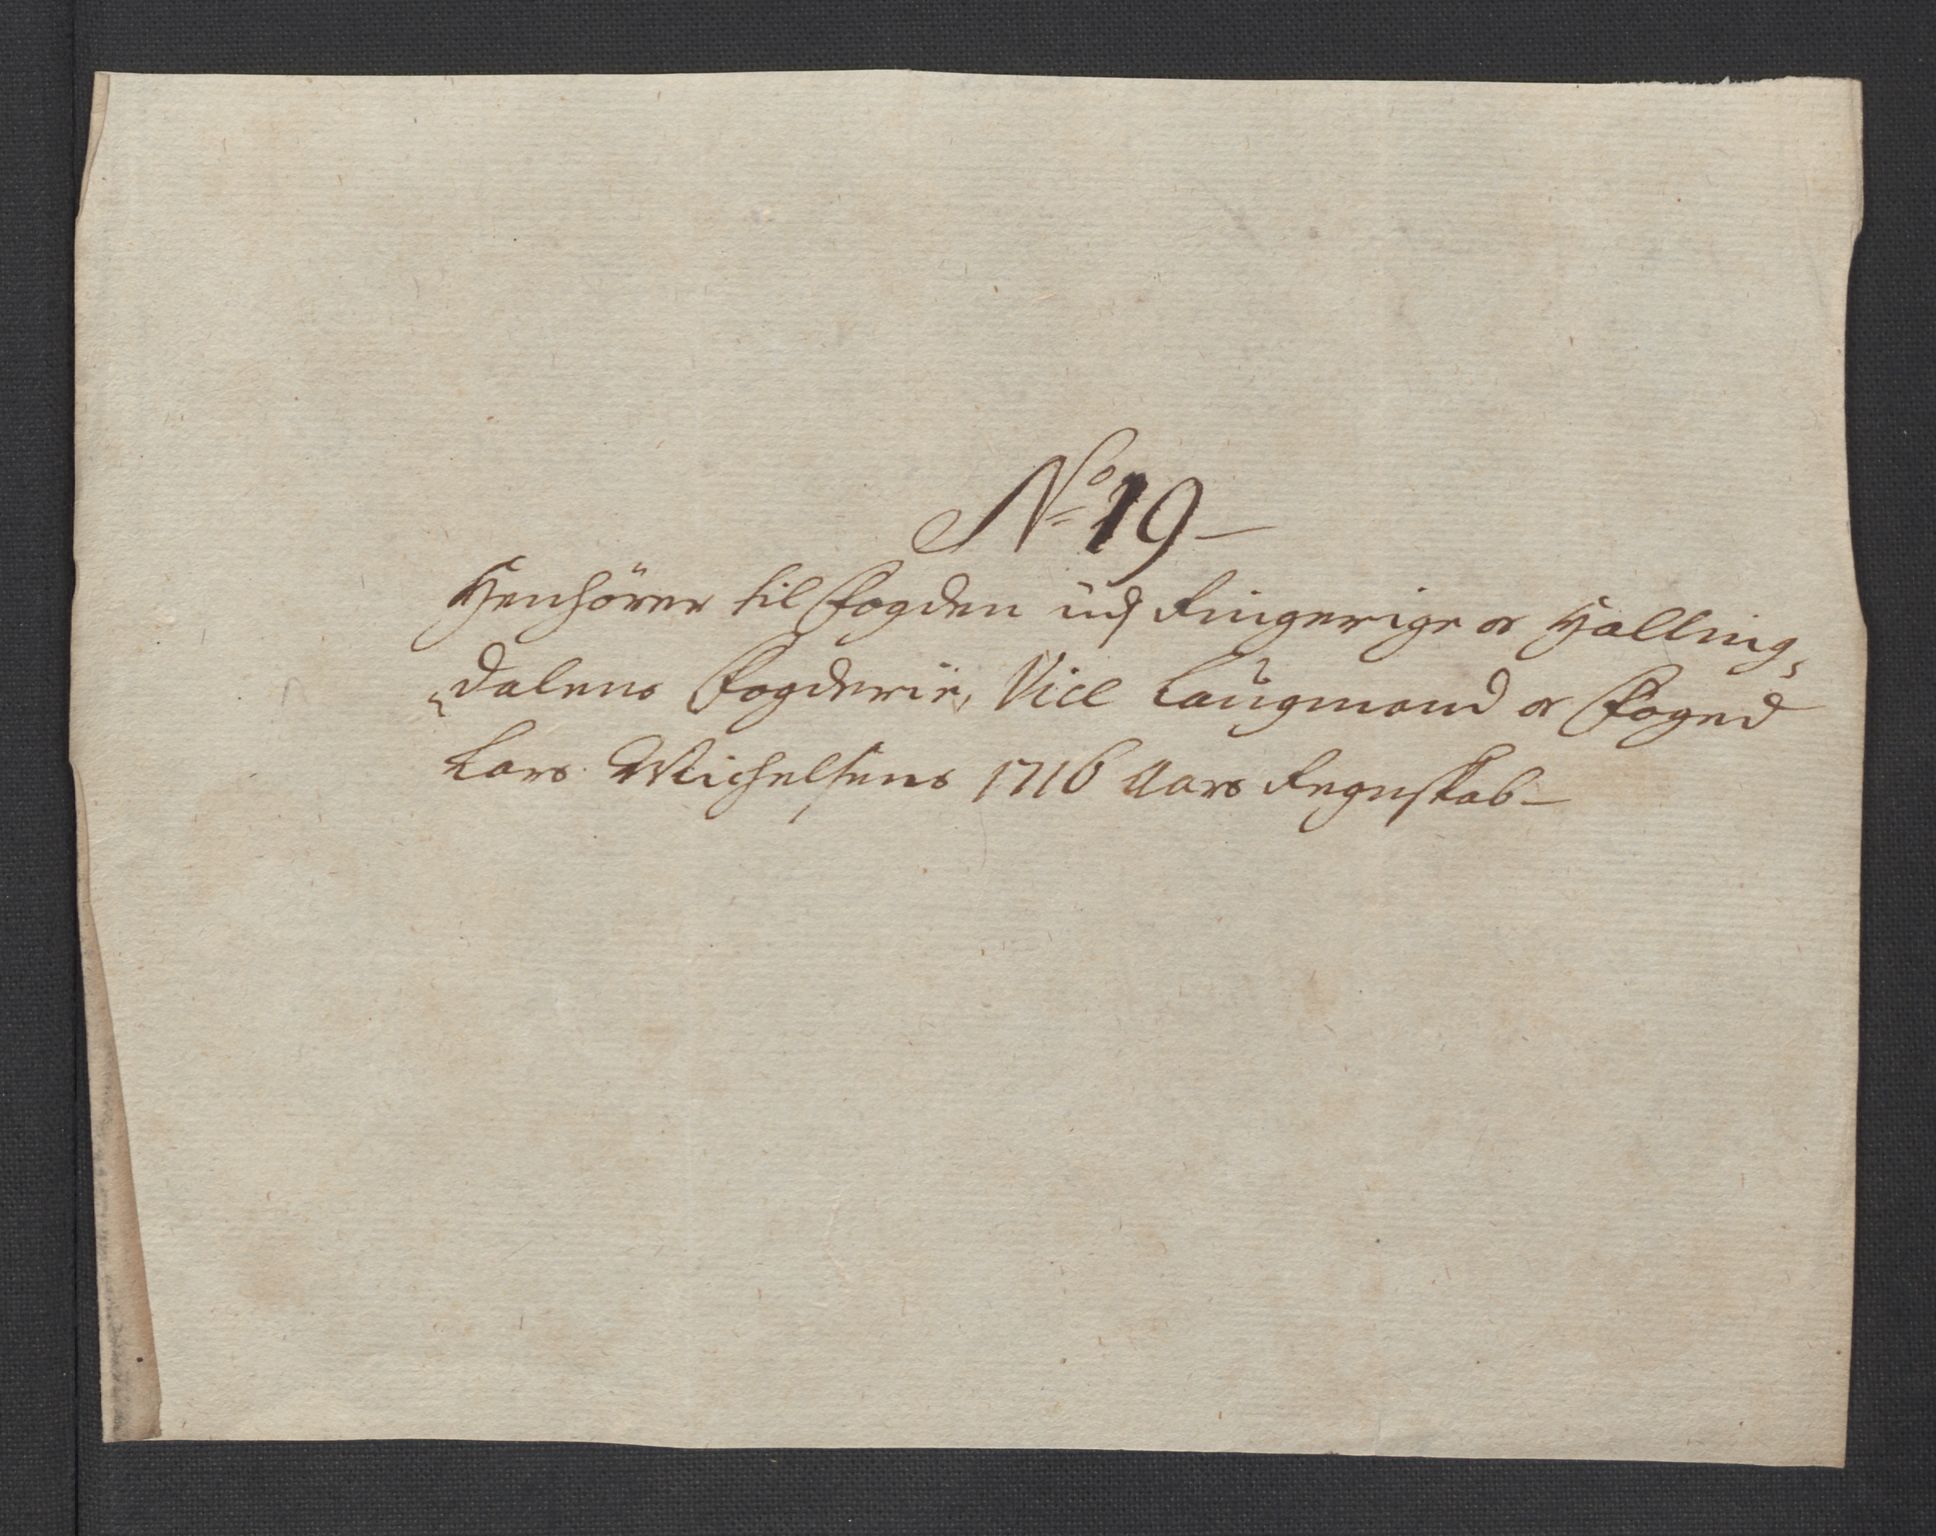 No 19 –
Henhörer til Fogden udj Ringerige og Halling,
dalens Fogderie, Vice Laugmand og Foged
Lars Michelsens 1716 Aars Regnskab –